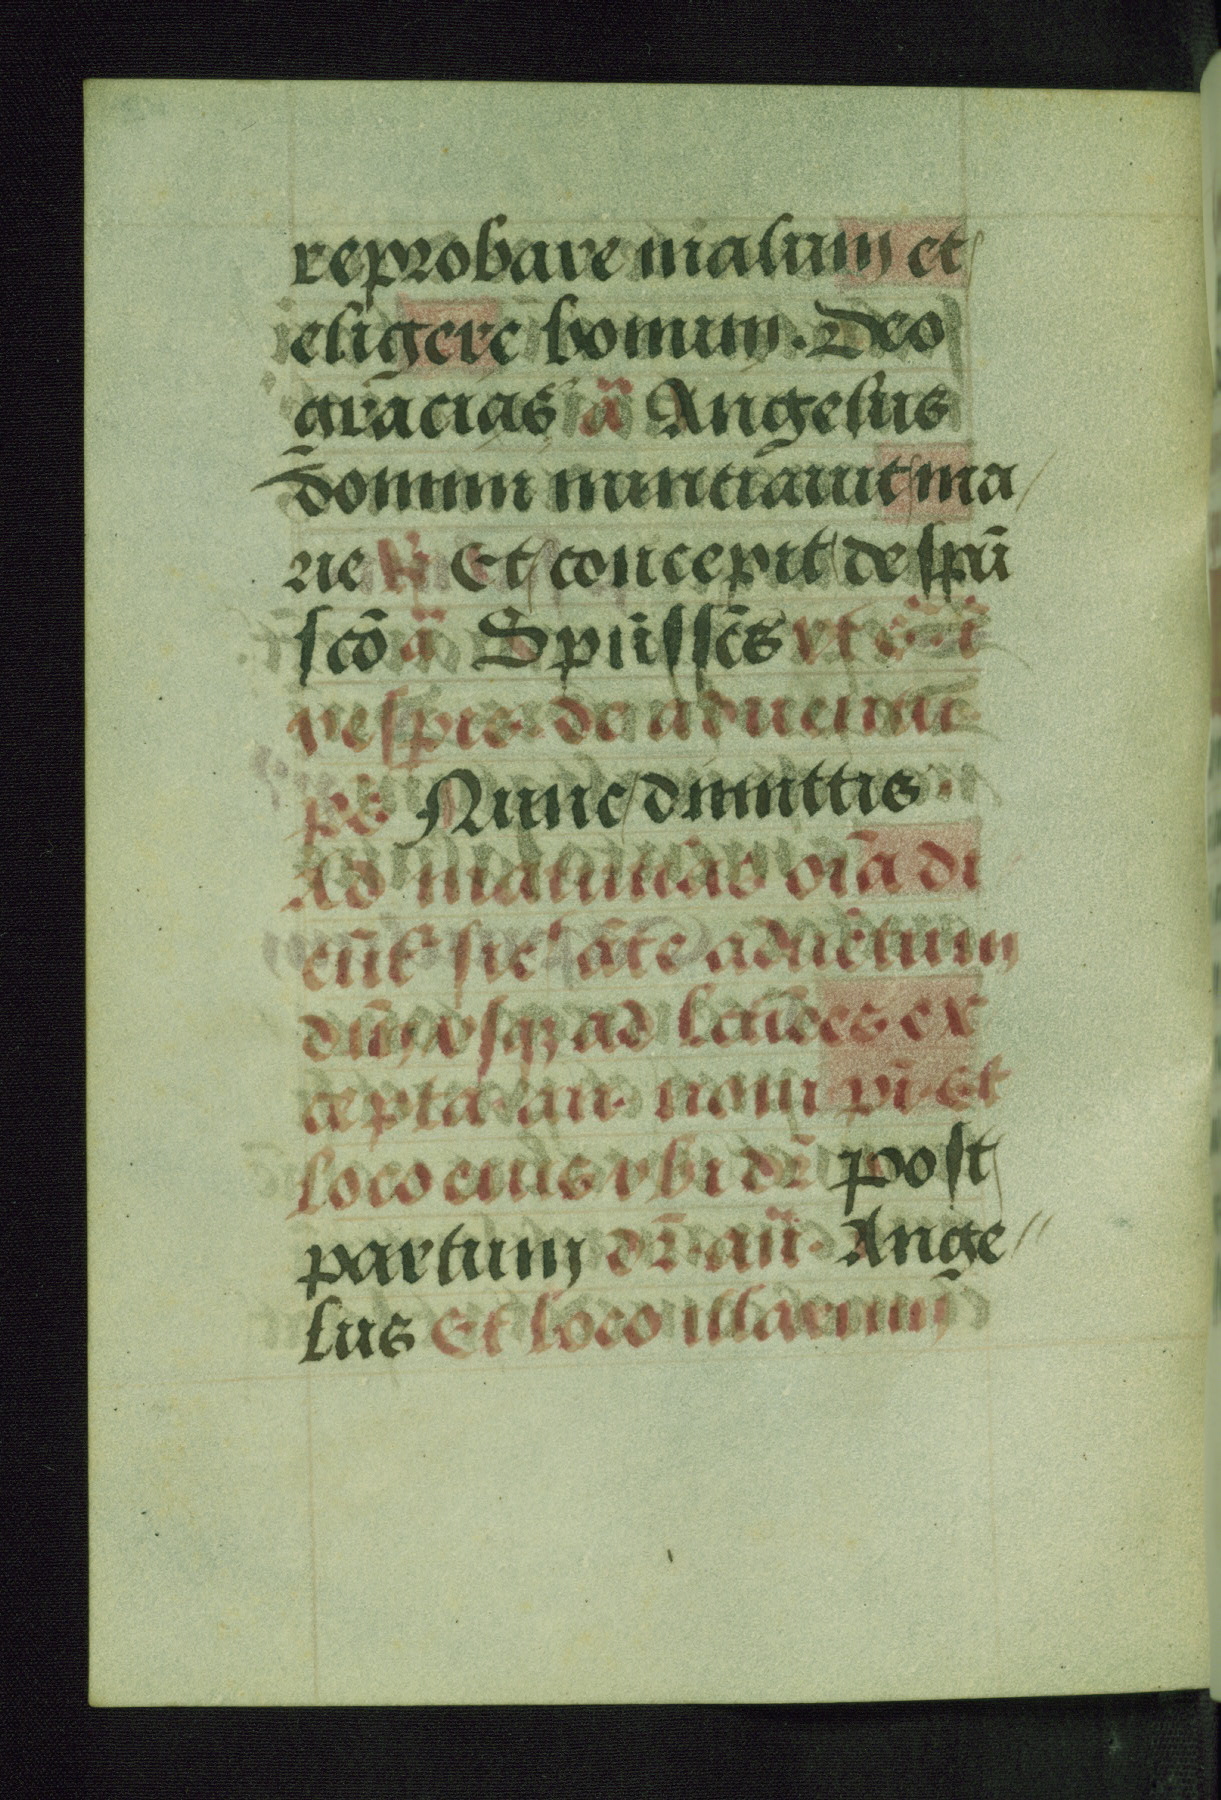 reprobare malum et
eligere bonum. Deo
gracias ā Angelus
domini nuntiauit ma
rie ℣ Et concepit de spū
scō ā Spūs scēs vt ī
vespīs de aduentu
ps Nunc dimittis
Ad matutinas oīa di
cūt sic āte aduētum
dnī vsqȝ ad laudes ex
cepta an nom pī Et
loco eius vbi dr̄ post
partum dr̄ an̄. Ange
lus Et loco illarum